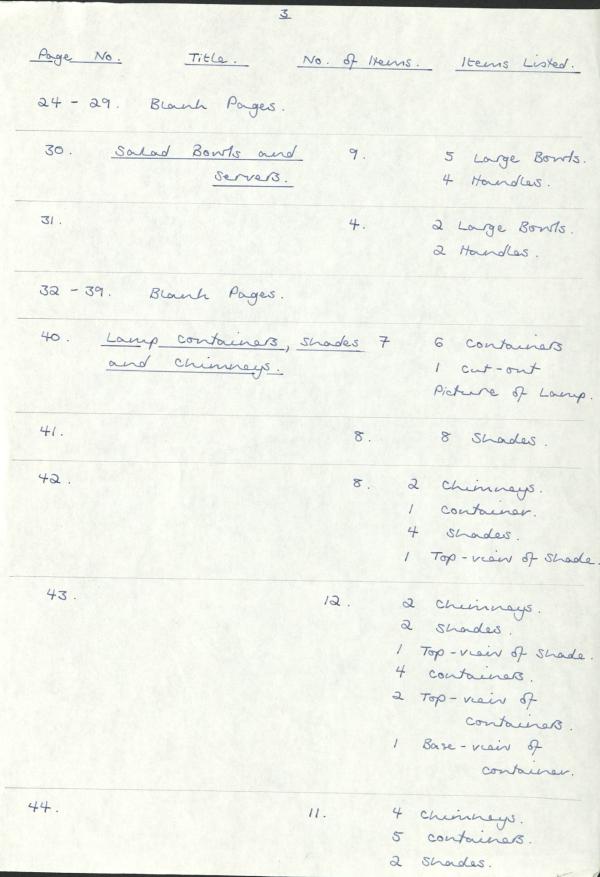 3
Page No. Title. No. of Items. Items Listed.
24 - 29. Blank Pages.
30. Salad Bowls and 9. 5 Large Bowls.
Servers. 4 Handles.
31. 4. 2 Large Bowls.
2 Handles.
32 - 39. Blank Pages.
40. Lamp containers, shades 7 6 Containers
and chimneys. 1 cut-out
Picture of Lamp.
41. 8. 8 Shades.
42. 8. 2 Chimneys.
1 Container.
4 Shades.
1 Top-view of Shade.
43. 12. 2 Chimneys.
2 Shades.
1 Top-view of Shade.
4 Containers.
2 Top-view of
Containers.
1 Base-view of
container.
44. 11. 4 Chimneys.
5 Containers.
2 Shades.